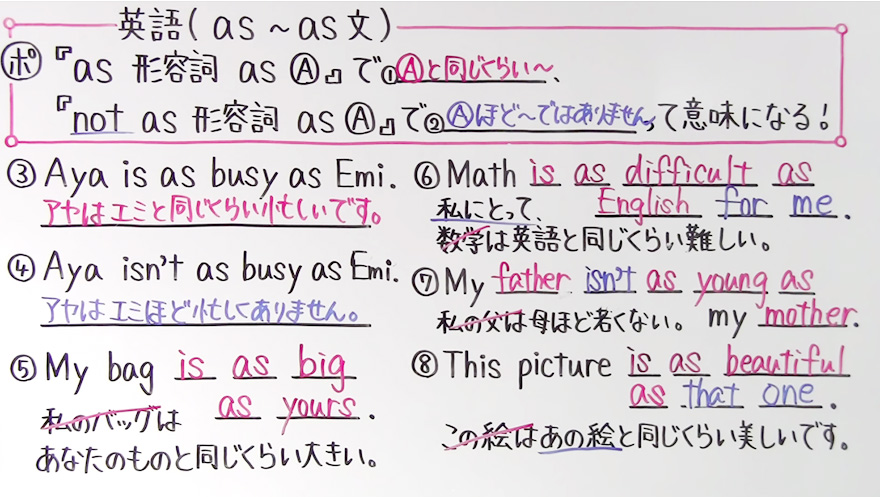 英語(as～as文)
ポ『as 形容詞 as Ⓐ』で①Ⓐと同じくらい～、
『not as 形容詞 as Ⓐ』で②Ⓐほど～ではありませんって意味になる!
③Aya is as busy as Emi.
アヤはエミと同じくらい忙しいです。
④Aya isn't as busy as Emi.
アヤはエミほど忙しくありません。
⑤My bag is as big
as yours.
私のバッグは
あなたのものと同じくらい大きい。
⑥Math is as difficult as
English for me.
私にとって、
数学は英語と同じくらい難しい。
⑦My father isn't as young as
my mother.
私の父は母ほど若くない。
⑧This picture is as beautiful
as that one.
この絵はあの絵と同じくらい美しいです。